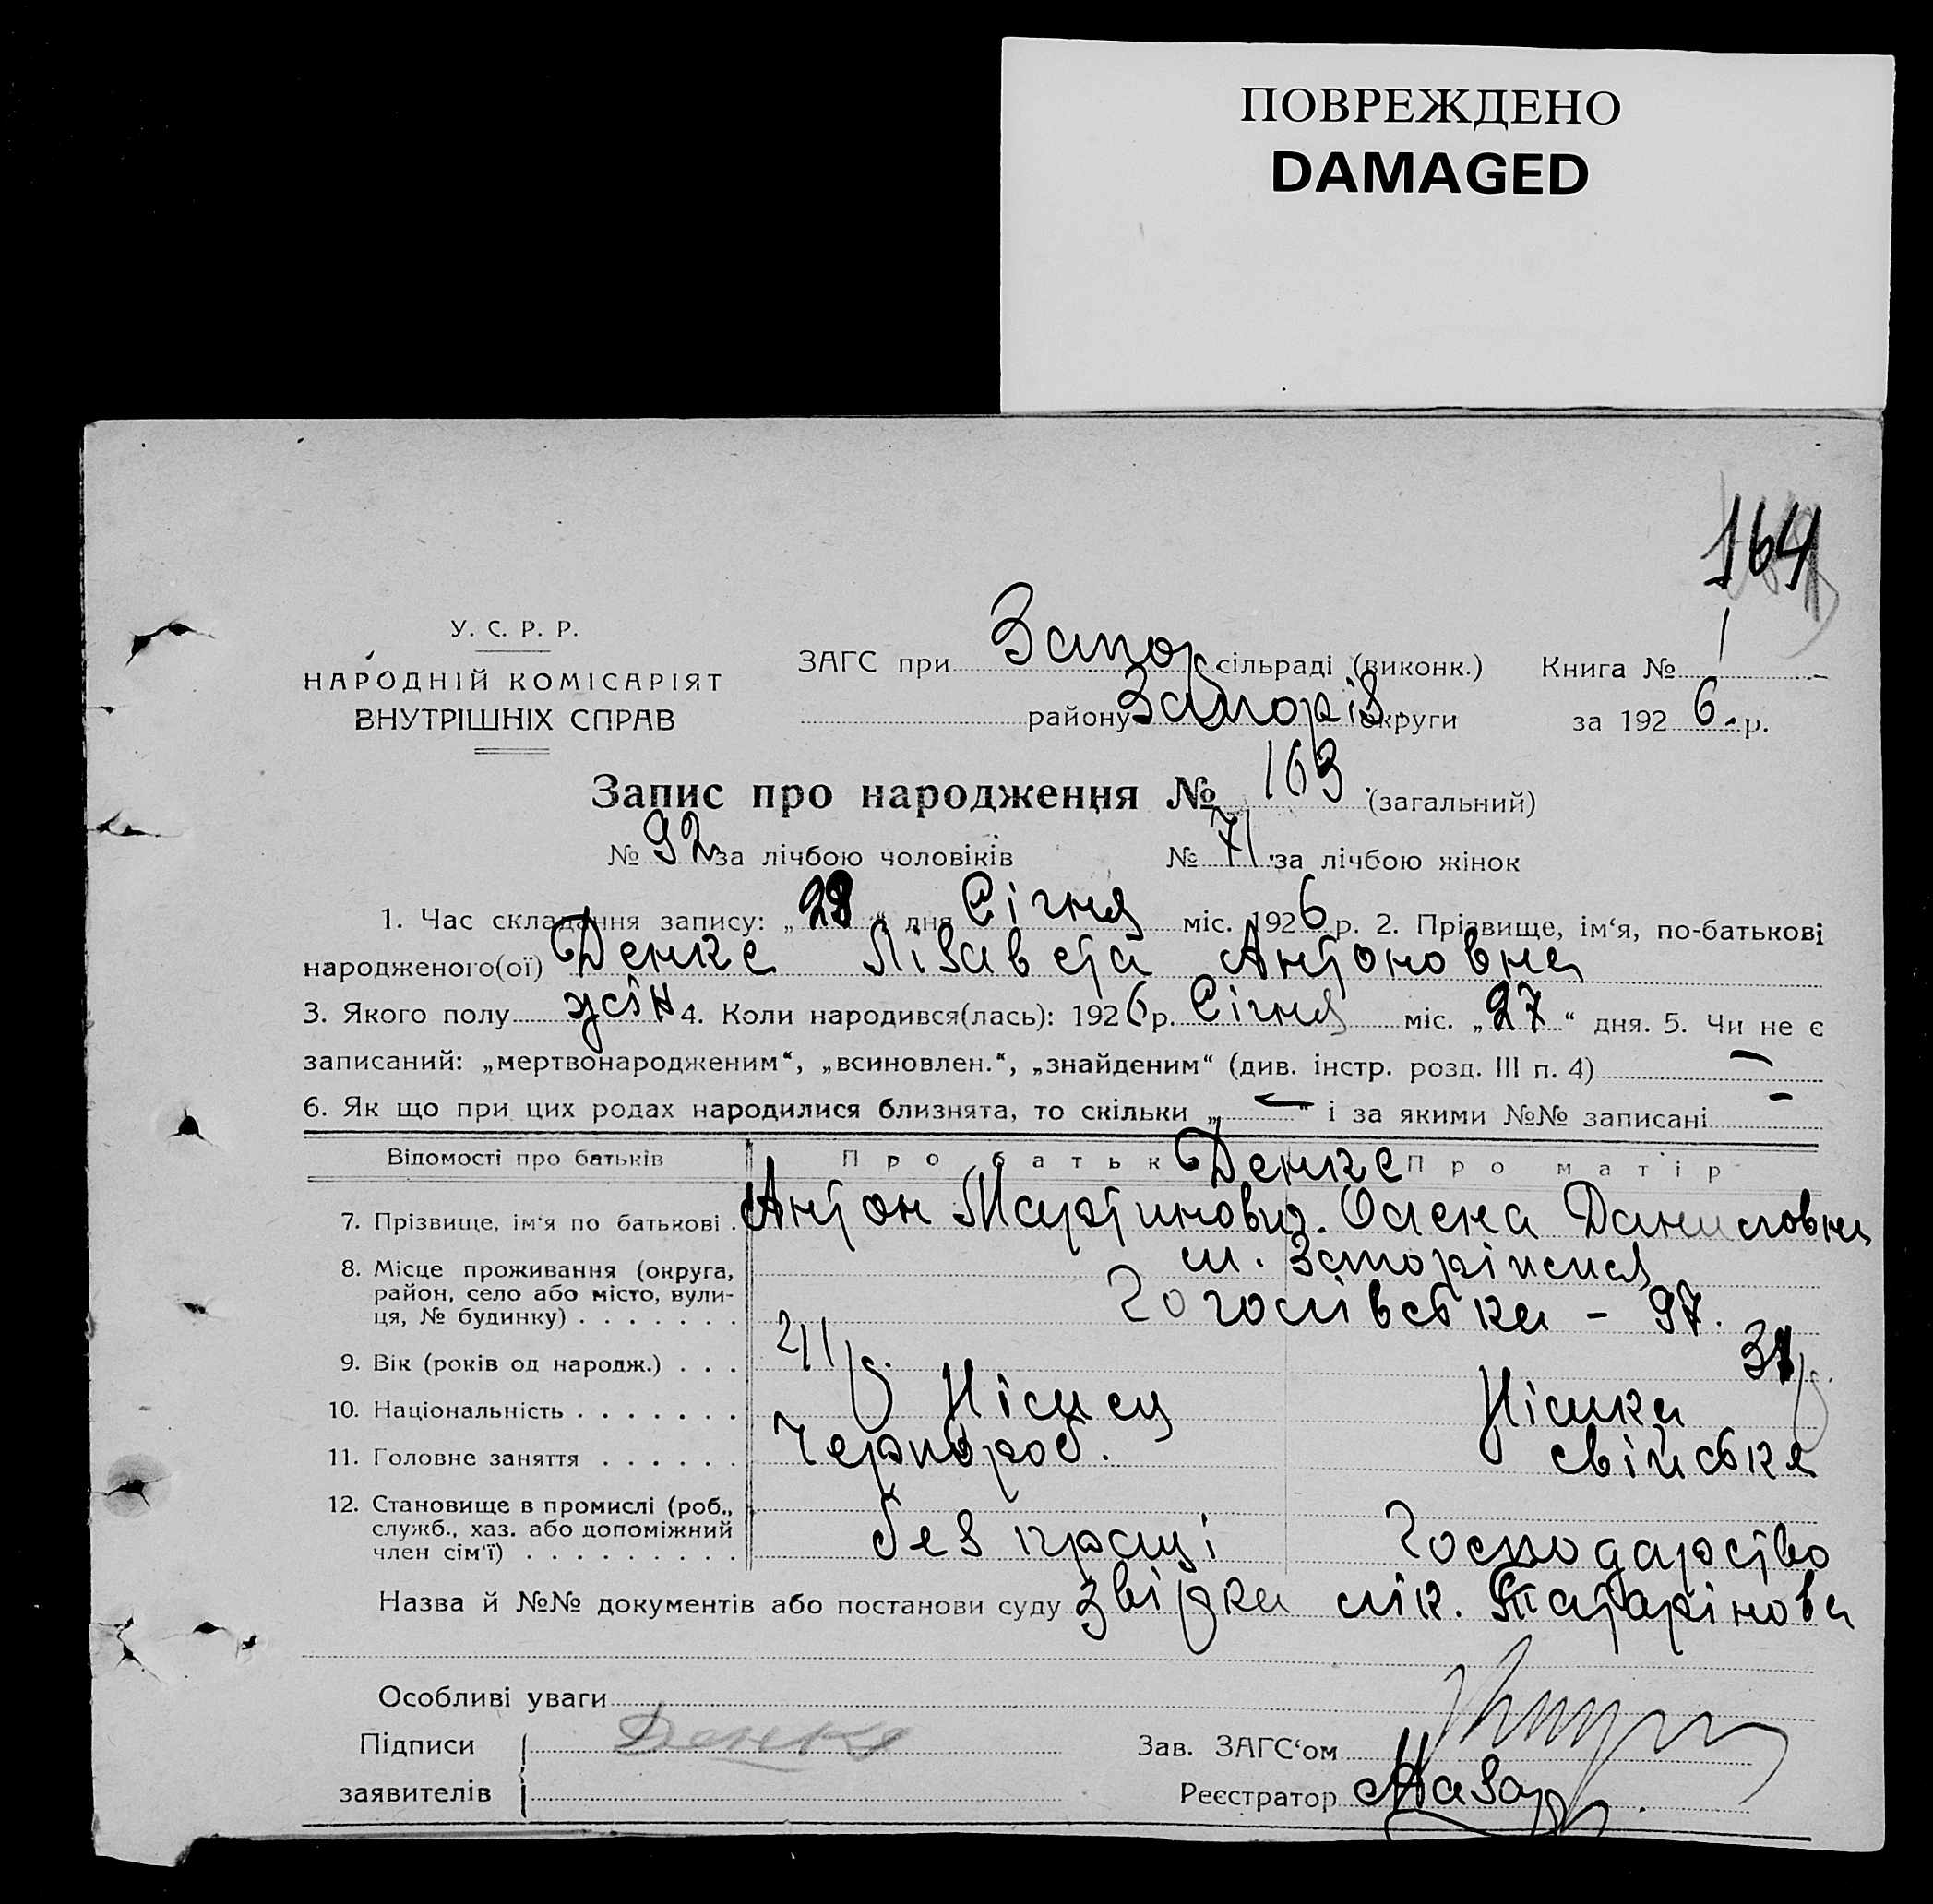 ПОВРЕЖДЕНО
DAMAGED
164
У. С. Р. Р.
НАРОДНІЙ КОМІСАРІЯТ
ВНУТРІШНІХ СПРАВ
ЗАГС при Запор сільраді (виконк.) Книга № 1
району Запоріз. округи за 1926 р.
Запис про народження № 163 (загальний)
№ 92 за лічбою чоловіків № 71 за лічбою жінок
1. Час складання запису: „28“ дня Січня міс. 1926 р. 2. Прізвище, ім‘я, по-батькові
народженого(ої) Денке Лізавета Антоновна
3. Якого полу жін 4. Коли народився(лась): 1926 р. Січня міс. „27“ дня. 5. Чи не є
записаний: „мертвонародженим“, „всиновлен.“, „знайденим“ (див. інстр. розд. III п. 4) —
6. Як що при цих родах народилися близнята, то скільки „—“ і за якими №№ записані —
Відомості про батьків Про батьк Денке Про матір
7. Прізвище, ім‘я по батькові . Антон Мартинович. Олена Даниловна
8. Місце проживання (округа, м. Запоріжжя
район, село або місто, вули-
ця, № будинку) . . . . . . . Гоголівська – 97.
9. Вік (років од народж.) . . . р.
10. Національність . . . . . . . Німец Німка
11. Головне заняття . . . . . . Чорнороб. свійське
12. Становище в промислі (роб.,
служб., хаз. або допоміжний без праці Господарство
член сім‘ї) . . . . . . . . .
Назва й №№ документів або постанови суду звідка лік. Татарінова
Особливі уваги
Підписи Денке Зав. ЗАГС‘ом
заявителів Реєстратор